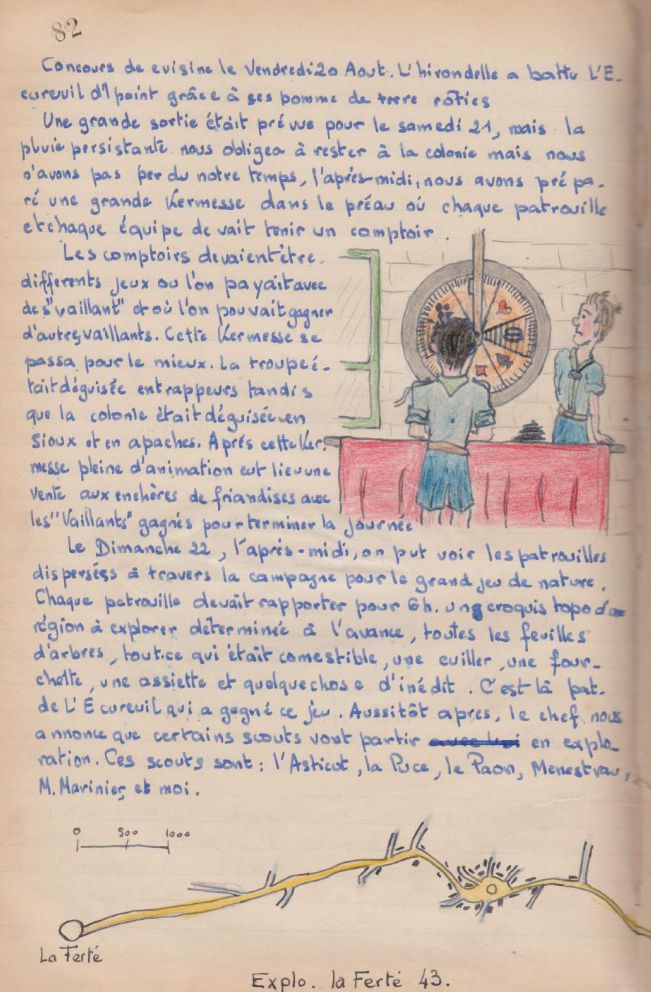 82
Concours de cuisine le Vendredi 20 Aout. L'hirondelle a battu L'E.
cureuil d'1 point grâce à ses pomme de terre rôties
Une grande sortie était prévue pour le samedi 21, mais la
pluie persistante nous obligea à rester à la colonie mais nous
n'avons pas perdu notre temps, l'après-midi, nous avons prépa-
ré une grande Kermesse dans le préau où chaque patrouille
et chaque équipe devait tenir un comptoir.
Les comptoirs devaient être
differents jeux ou l'on payait avec
des "vaillant" et où l'on pouvait gagner
d'autres vaillants. Cette Kermesse se
passa pour le mieux. La troupe é-
tait déguisée en trappeurs tandis
que la colonie était déguisée en
Sioux et en apaches. Après cette Ker-
messe pleine d'animation eut lieu une
vente aux enchères de friandises avec
les "Vaillants" gagnés pour terminer la journée
Le Dimanche 22, l'après-midi, on put voir les patrouilles
dispersées à travers la campagne pour le grand jeu de nature.
Chaque patrouille devait rapporter pour 6h. un croquis topo d'une
région à explorer déterminée à l'avance, toutes les feuilles
d'arbres, tout ce qui était comestible, une cuiller, une four-
chette, une assiette et quelque chose d'inédit. C'est la pat.
de L'Ecureuil qui a gagné ce jeu. Aussitôt apres, le chef nous
annonce que certains scouts vont partir en explo-
ration. Ces scouts sont : l'Asticot, la Puce, le Paon, Menestrau,
M. Marinier, et moi.
0 500 1000
La Ferté
Explo. la Ferté 43.